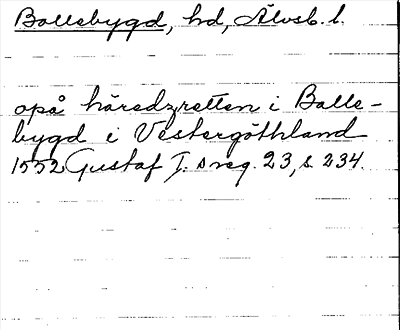 Bollebygd, hd, Älvsb. l.
opå häredzretten i Bolle-
bygd i Vestergöthland
1552 Gustaf I:s reg. 23, s. 234.